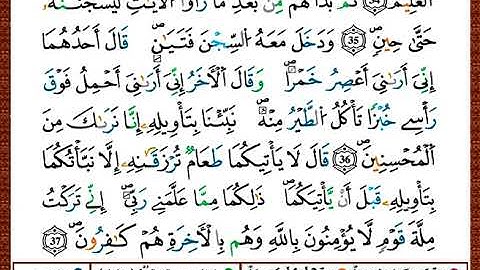 ٱلۡعَلِيمُ ٣٤ ثُمَّ بَدَا لَهُم مِّنۢ بَعۡدِ مَا رَأَوُاْ ٱلۡأٓيَٰتِ لَيَسۡجُنُنَّهُۥ
حَتَّىٰ حِينٖ ٣٥ وَدَخَلَ مَعَهُ ٱلسِّجۡنَ فَتَيَانِۖ قَالَ أَحَدُهُمَآ
إِنِّيٓ أَرَىٰنِيٓ أَعۡصِرُ خَمۡرٗاۖ وَقَالَ ٱلۡأٓخَرُ إِنِّيٓ أَرَىٰنِيٓ أَحۡمِلُ فَوۡقَ
رَأۡسِي خُبۡزٗا تَأۡكُلُ ٱلطَّيۡرُ مِنۡهُۖ نَبِّئۡنَا بِتَأۡوِيلِهِۦٓۖ إِنَّا نَرَىٰكَ مِنَ
ٱلۡمُحۡسِنِينَ ٣٦ قَالَ لَا يَأۡتِيكُمَا طَعَامٞ تُرۡزَقَانِهِۦٓ إِلَّا نَبَّأۡتُكُمَا
بِتَأۡوِيلِهِۦ قَبۡلَ أَن يَأۡتِيَكُمَاۚ ذَٰلِكُمَا مِمَّا عَلَّمَنِي رَبِّيٓۚ إِنِّي تَرَكۡتُ
مِلَّةَ قَوۡمٖ لَّا يُؤۡمِنُونَ بِٱللَّهِ وَهُم بِٱلۡأٓخِرَةِ هُمۡ كَٰفِرُونَ ٣٧